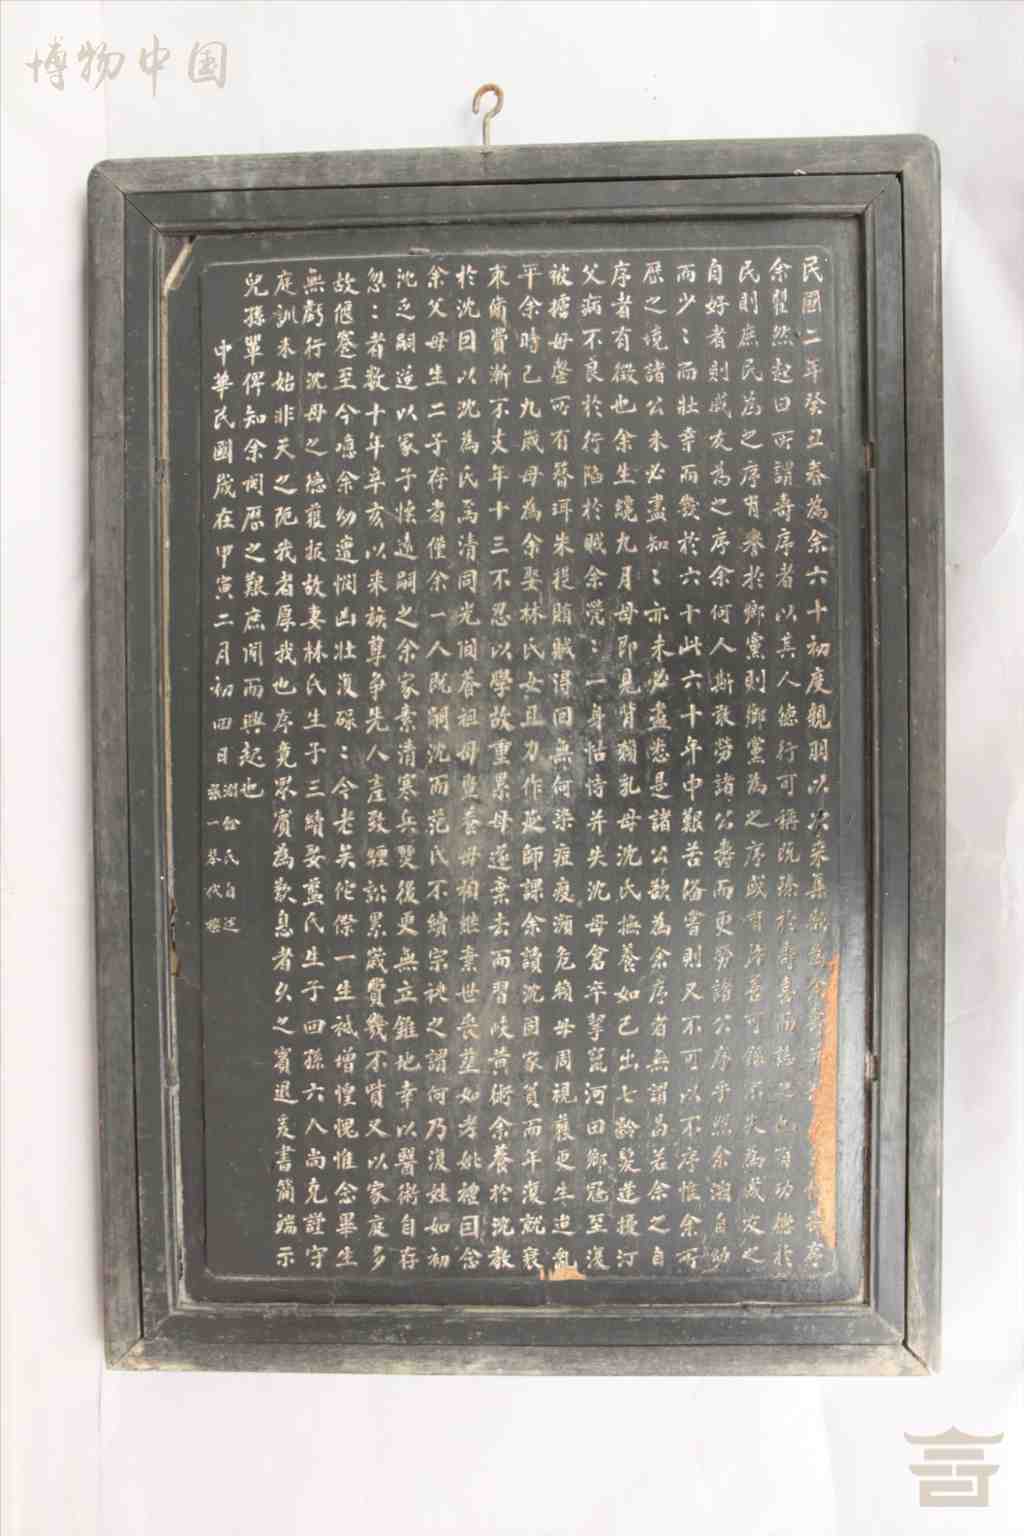 博物中国
民國二年癸丑春為余六十初度親朋以次來集
余瞿然起曰所謂壽序者以其人德行可稱
民則庶民為之序有譽於鄉黨則鄉黨為之序
自好者則戚友為之序余何人斯敢勞諸公壽而更勞諸公序乎然余
而少〻而壯幸而幾於六十此六十年中艱苦備嘗則又不可以不序惟余所
歷之境諸公未必盡知〻亦未必盡悉是諸公欲為余序者無謂曷若余之自
序者有徵也余生纔九月母即見背賴乳母沈氏撫養如己出七齡髮逆擾汀
父病不良於行陷於賊余煢〻一身怙恃并失沈母倉卒挈竄河田鄉冠至復
被擄母罄所有簪珥朱提賄賊得回無何染痘疫瀕危賴母周視獲更生迨亂
平余時已九歲母為余娶林氏女且力作延師課余讀沈固家貧而年復就衰
束脩費漸不支年十三不忍以學故重累母遂棄去而習岐黄術余養於沈教
於沈因以沈為氏焉清同光間養祖母暨養母相繼棄世喪葬如考妣禮回念
余父母生二子存者僅余一人既嗣沈而范氏不續宗祧之謂何乃復姓如初
沈乏嗣迨以家子懐遠嗣之余家素清寒兵燹後更無立錐地幸以醫術自存
忽〻者数十年辛亥以来族孽争先人產致纏訟累歲費幾不貲又以家庭多
故偃蹇至今噫余幼遭憫凶壯復碌〻今老矣侘傺一生祗增惶愧惟念畢生
無虧行沈母之德獲报故妻林氏生子三續娶藍氏生子四孫六人尚克謹守
庭訓未始非天之阨我者厚我也序竟眾賓為歎息者久之賓退爰書簡端示
兒孫輩俾知余閲歷之艱庶聞而興起也
中華民國歲在甲寅二月初四日
氏自述
張一琴代